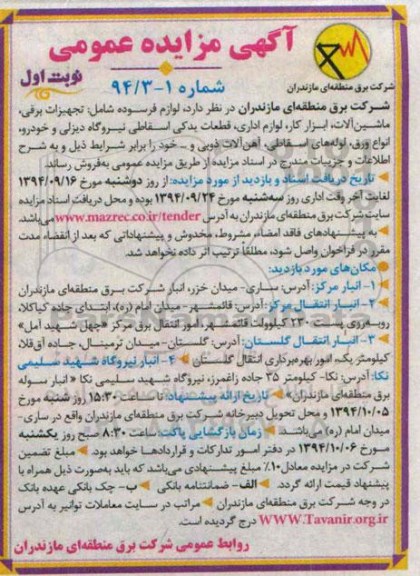 آگهی مزایده عمومی
شماره ۱-۹۴/۳
نوبت اول
شرکت برق منطقه‌ای مازندران
شرکت برق منطقه‌ای مازندران در نظر دارد، لوازم فرسوده شامل: تجهیزات برقی،
ماشین‌آلات، ابزار کار، لوازم اداری، قطعات یدکی اسقاطی نیروگاه دیزلی و خودرو،
انواع ورق، لوله‌های اسقاطی، آهن‌آلات ذوبی و ... خود را برابر شرایط ذیل و به شرح
اطلاعات و جزییات مندرج در اسناد مزایده از طریق مزایده عمومی به‌فروش رساند.
تاریخ دریافت اسناد و بازدید از مورد مزایده: از روز دوشنبه مورخ ۱۳۹۴/۰۹/۱۶
لغایت آخر وقت اداری روز سه‌شنبه مورخ ۱۳۹۴/۰۹/۲۴ بوده و محل دریافت اسناد مزایده
سایت شرکت برق منطقه‌ای مازندران به آدرس www.mazrec.co.ir/tender می‌باشد.
به پیشنهادهای فاقد امضاء، مشروط، مخدوش و پیشنهاداتی که بعد از انقضاء مدت
مقرر در فراخوان واصل شود، مطلقاً ترتیب اثر داده نخواهد شد.
مکان‌های مورد بازدید:
۱- انبار مرکز: آدرس: ساری- میدان خزر، انبار شرکت برق منطقه‌ای مازندران
۲- انبار انتقال مرکز: آدرس: قائمشهر- میدان امام (ره)، ابتدای جاده کیاکلا،
روبه‌روی پست ۲۳۰ کیلوولت قائمشهر، امور انتقال برق مرکز «چهل شهید آمل»
۳- انبار انتقال گلستان: آدرس: گلستان- میدان ترمینال، جاده آق‌قلا،
کیلومتر یک، امور بهره‌برداری انتقال گلستان ۴- انبار نیروگاه شهید سلیمی
نکا: آدرس: نکا- کیلومتر ۲۵ جاده زاغمرز، نیروگاه شهید سلیمی نکا «انبار سوله
برق منطقه‌ای مازندران» تاریخ ارائه پیشنهاد: تا ساعت ۱۵:۳۰ روز شنبه مورخ
۱۳۹۴/۱۰/۰۵ و محل تحویل دبیرخانه شرکت برق منطقه‌ای مازندران واقع در ساری-
میدان امام (ره) می‌باشد زمان بازگشایی پاکت: ساعت ۸:۳۰ صبح روز یکشنبه
مورخ ۱۳۹۴/۱۰/۰۶ در دفتر امور تدارکات و قراردادها خواهد بود. مبلغ تضمین
شرکت در مزایده معادل ۱۰٪ مبلغ پیشنهادی می‌باشد که باید به‌صورت ذیل همراه با
پیشنهاد قیمت ارائه گردد. الف- ضمانتنامه بانکی ب- چک بانکی عهده بانک
در وجه شرکت برق منطقه‌ای مازندران مراتب در سایت معاملات توانیر به آدرس
WWW.Tavanir.org.ir درج گردیده است.
روابط عمومی شرکت برق منطقه‌ای مازندران